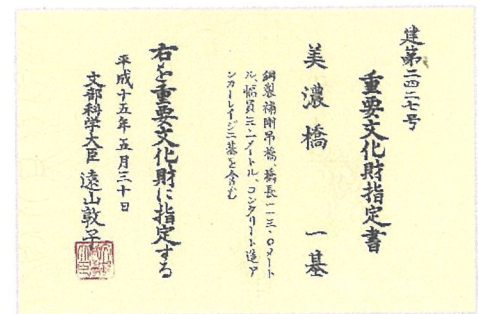 建第二四二七号
重要文化財指定書
美濃橋 一基
鋼製補剛吊橋、橋長一一三・〇メート
ル、幅員三・一メートル、コンクリート造ア
ンカーレイジ二基を含む
右を重要文化財に指定する
平成十五年五月三十日
文部科学大臣 遠山敦子